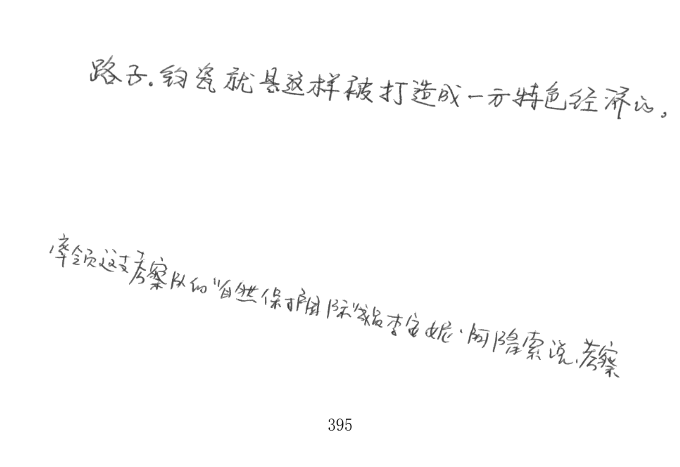 路子.钧瓷就是这样被打造成一方特色经济的。
率领这支考察队的“自然保护国际”家安妮·阿隆索说,考察
395